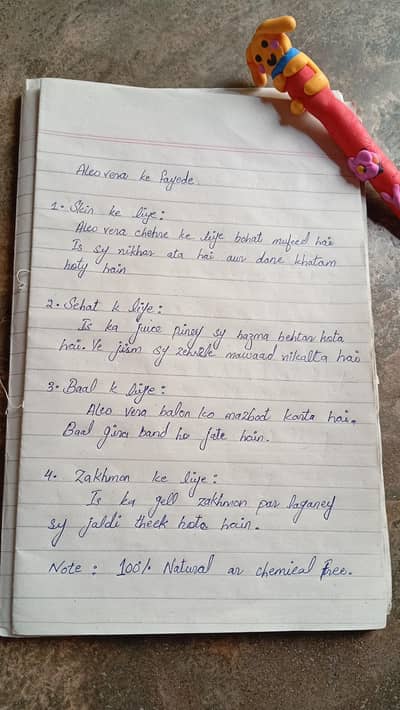 Aleo vera ke fayode.
1. Skin ke liye:
Aleo vera chehre ke liye bohat mufeed hai
Is sy nikhar ata hai aur dane khatam
hoty hain
2. Sehat k liye:
Is ka juice piney sy hazma behtar hota
hai. Ye jism sy zehrile mawaad nikalta hai
3. Baal k liye:
Aleo vera balon ko mazboot karta hai.
Baal girna band ho jate hain.
4. Zakhmon ke liye:
Is ka gell zakhmon par laganey
sy jaldi theek hota hain.
Note: 100% Natural ar chemical free.